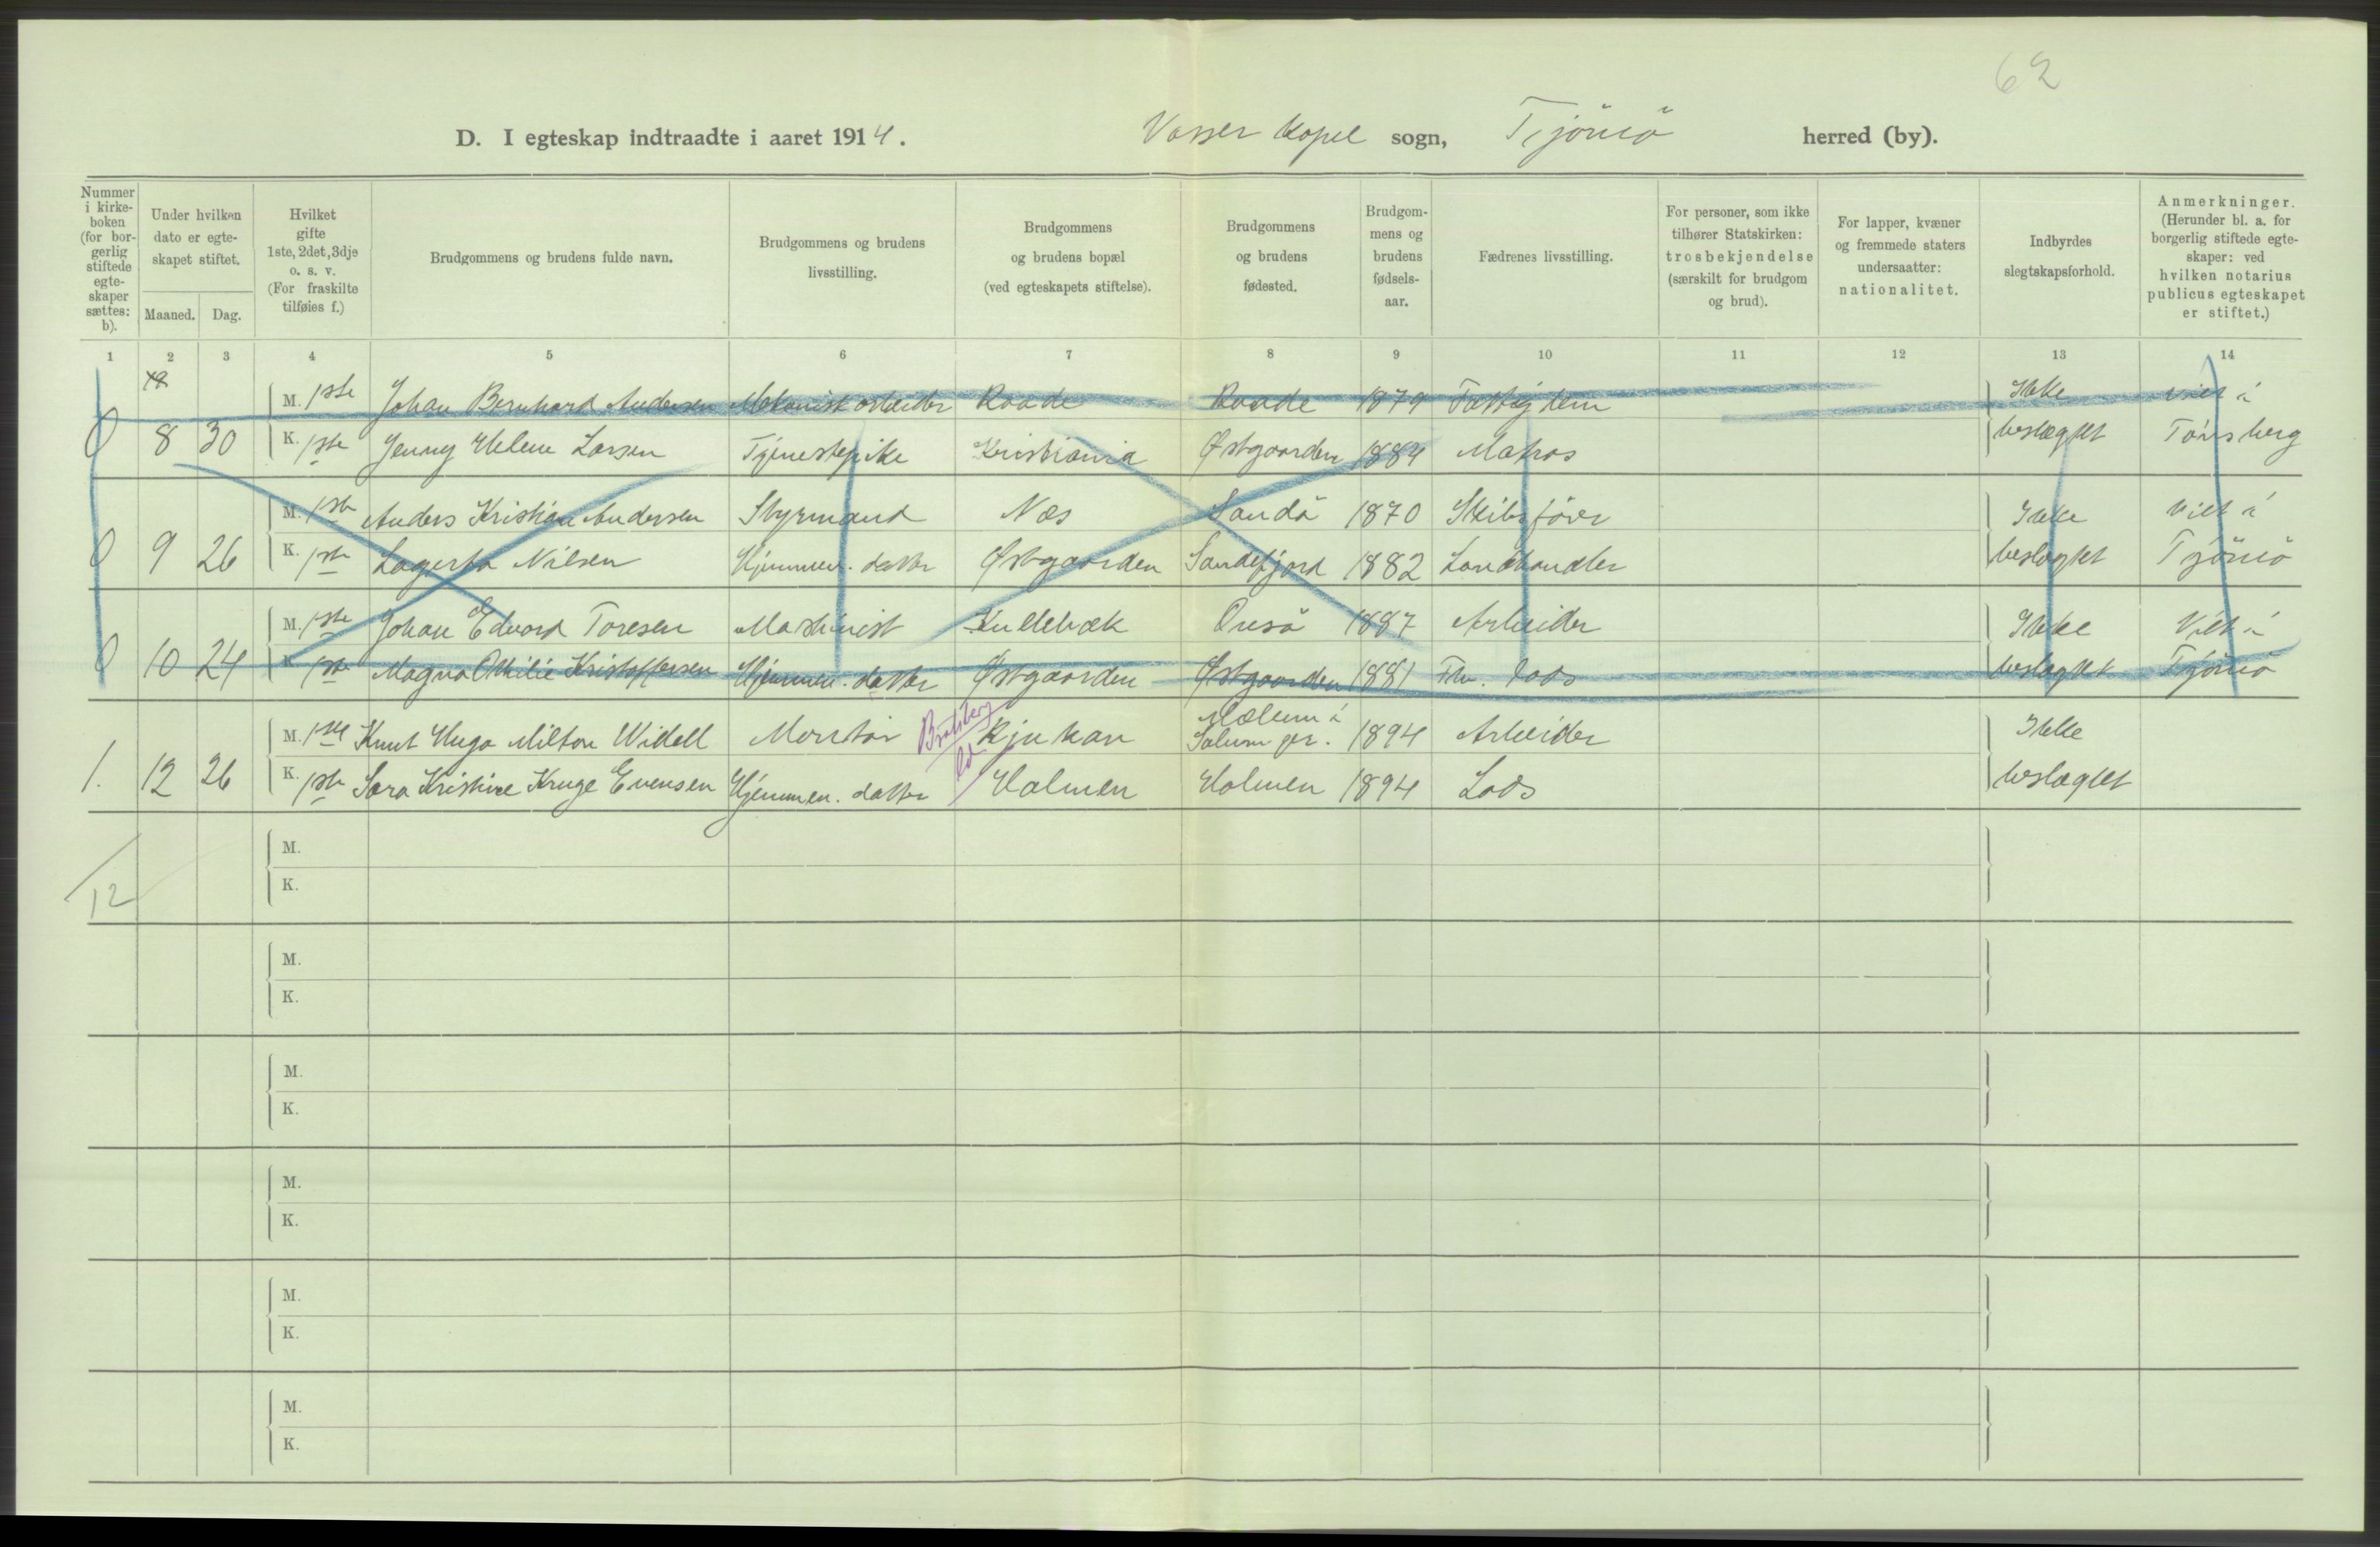 62
D. I egteskap indtraadte i aaret 1914. Vasser Kapel sogn, Tjömö herred (by).
Nummer i kirke-boken (for bor-gerlig stiftede egte-skaper sættes: b).
Under hvilken dato er egte-skapet stiftet.
Maaned. Dag.
Hvilket gifte 1ste, 2det, 3dje o. s. v. (For fraskilte tilføies f.)
Brudgommens og brudens fulde navn.
Brudgommens og brudens livsstilling.
Brudgommens og brudens bopæl (ved egteskapets stiftelse).
Brudgommens og brudens fødested.
Brudgom-mens og brudens fødsels-aar.
Fædrenes livsstilling.
For personer, som ikke tilhører Statskirken: trosbekjendelse (særskilt for brudgom og brud).
For lapper, kvæner og fremmede staters undersaatter: nationalitet.
Indbyrdes slegtskapsforhold.
Anmerkninger. (Herunder bl. a. for borgerlig stiftede egte-skaper: ved hvilken notarius publicus egteskapet er stiftet.)
1 2 3 4 5 6 7 8 9 10 11 12 13 14
M. 1ste Johan Bernhard Andersen Mekanisk arbeider Raade Raade 1879 Ikke viet i
0 8 30 K. 1ste Jenny Helene Larsen Tjenestepike Kristiania Østgaarden 1884 Matros beslægtet Tönsberg
M. 1ste Anders Kristian Andersen Styrmand Næs Sandö 1870 Skibsförer Ikke viet i
0 9 26 K. 1ste Lagerta Nilsen Hjemmev. datter Østgaarden Sandefjord 1882 Landhandler beslægtet Tjömö
M. 1ste Johan Edvard Toresen Maskinist Kullebæk Onsö 1887 Arbeider Ikke Viet i
0 10 24 K. 1ste Magna Othilie Kristoffersen Hjemmev. datter Østgaarden Østgaarden 1881 Fhv. Lods beslægtet Tjömö
M. 1ste Knut Hugo Milton Widell Montör Bratsberg Rjukan Mælum i Solum pr. 1894 Arbeider Ikke
1. 12 26 K. 1ste Sara Kristine Kruge Evensen Hjemmev. datter Holmen Holmen 1894 Lods beslægtet
M.
K.
12
M.
K.
M.
K.
M.
K.
M.
K.
M.
K.